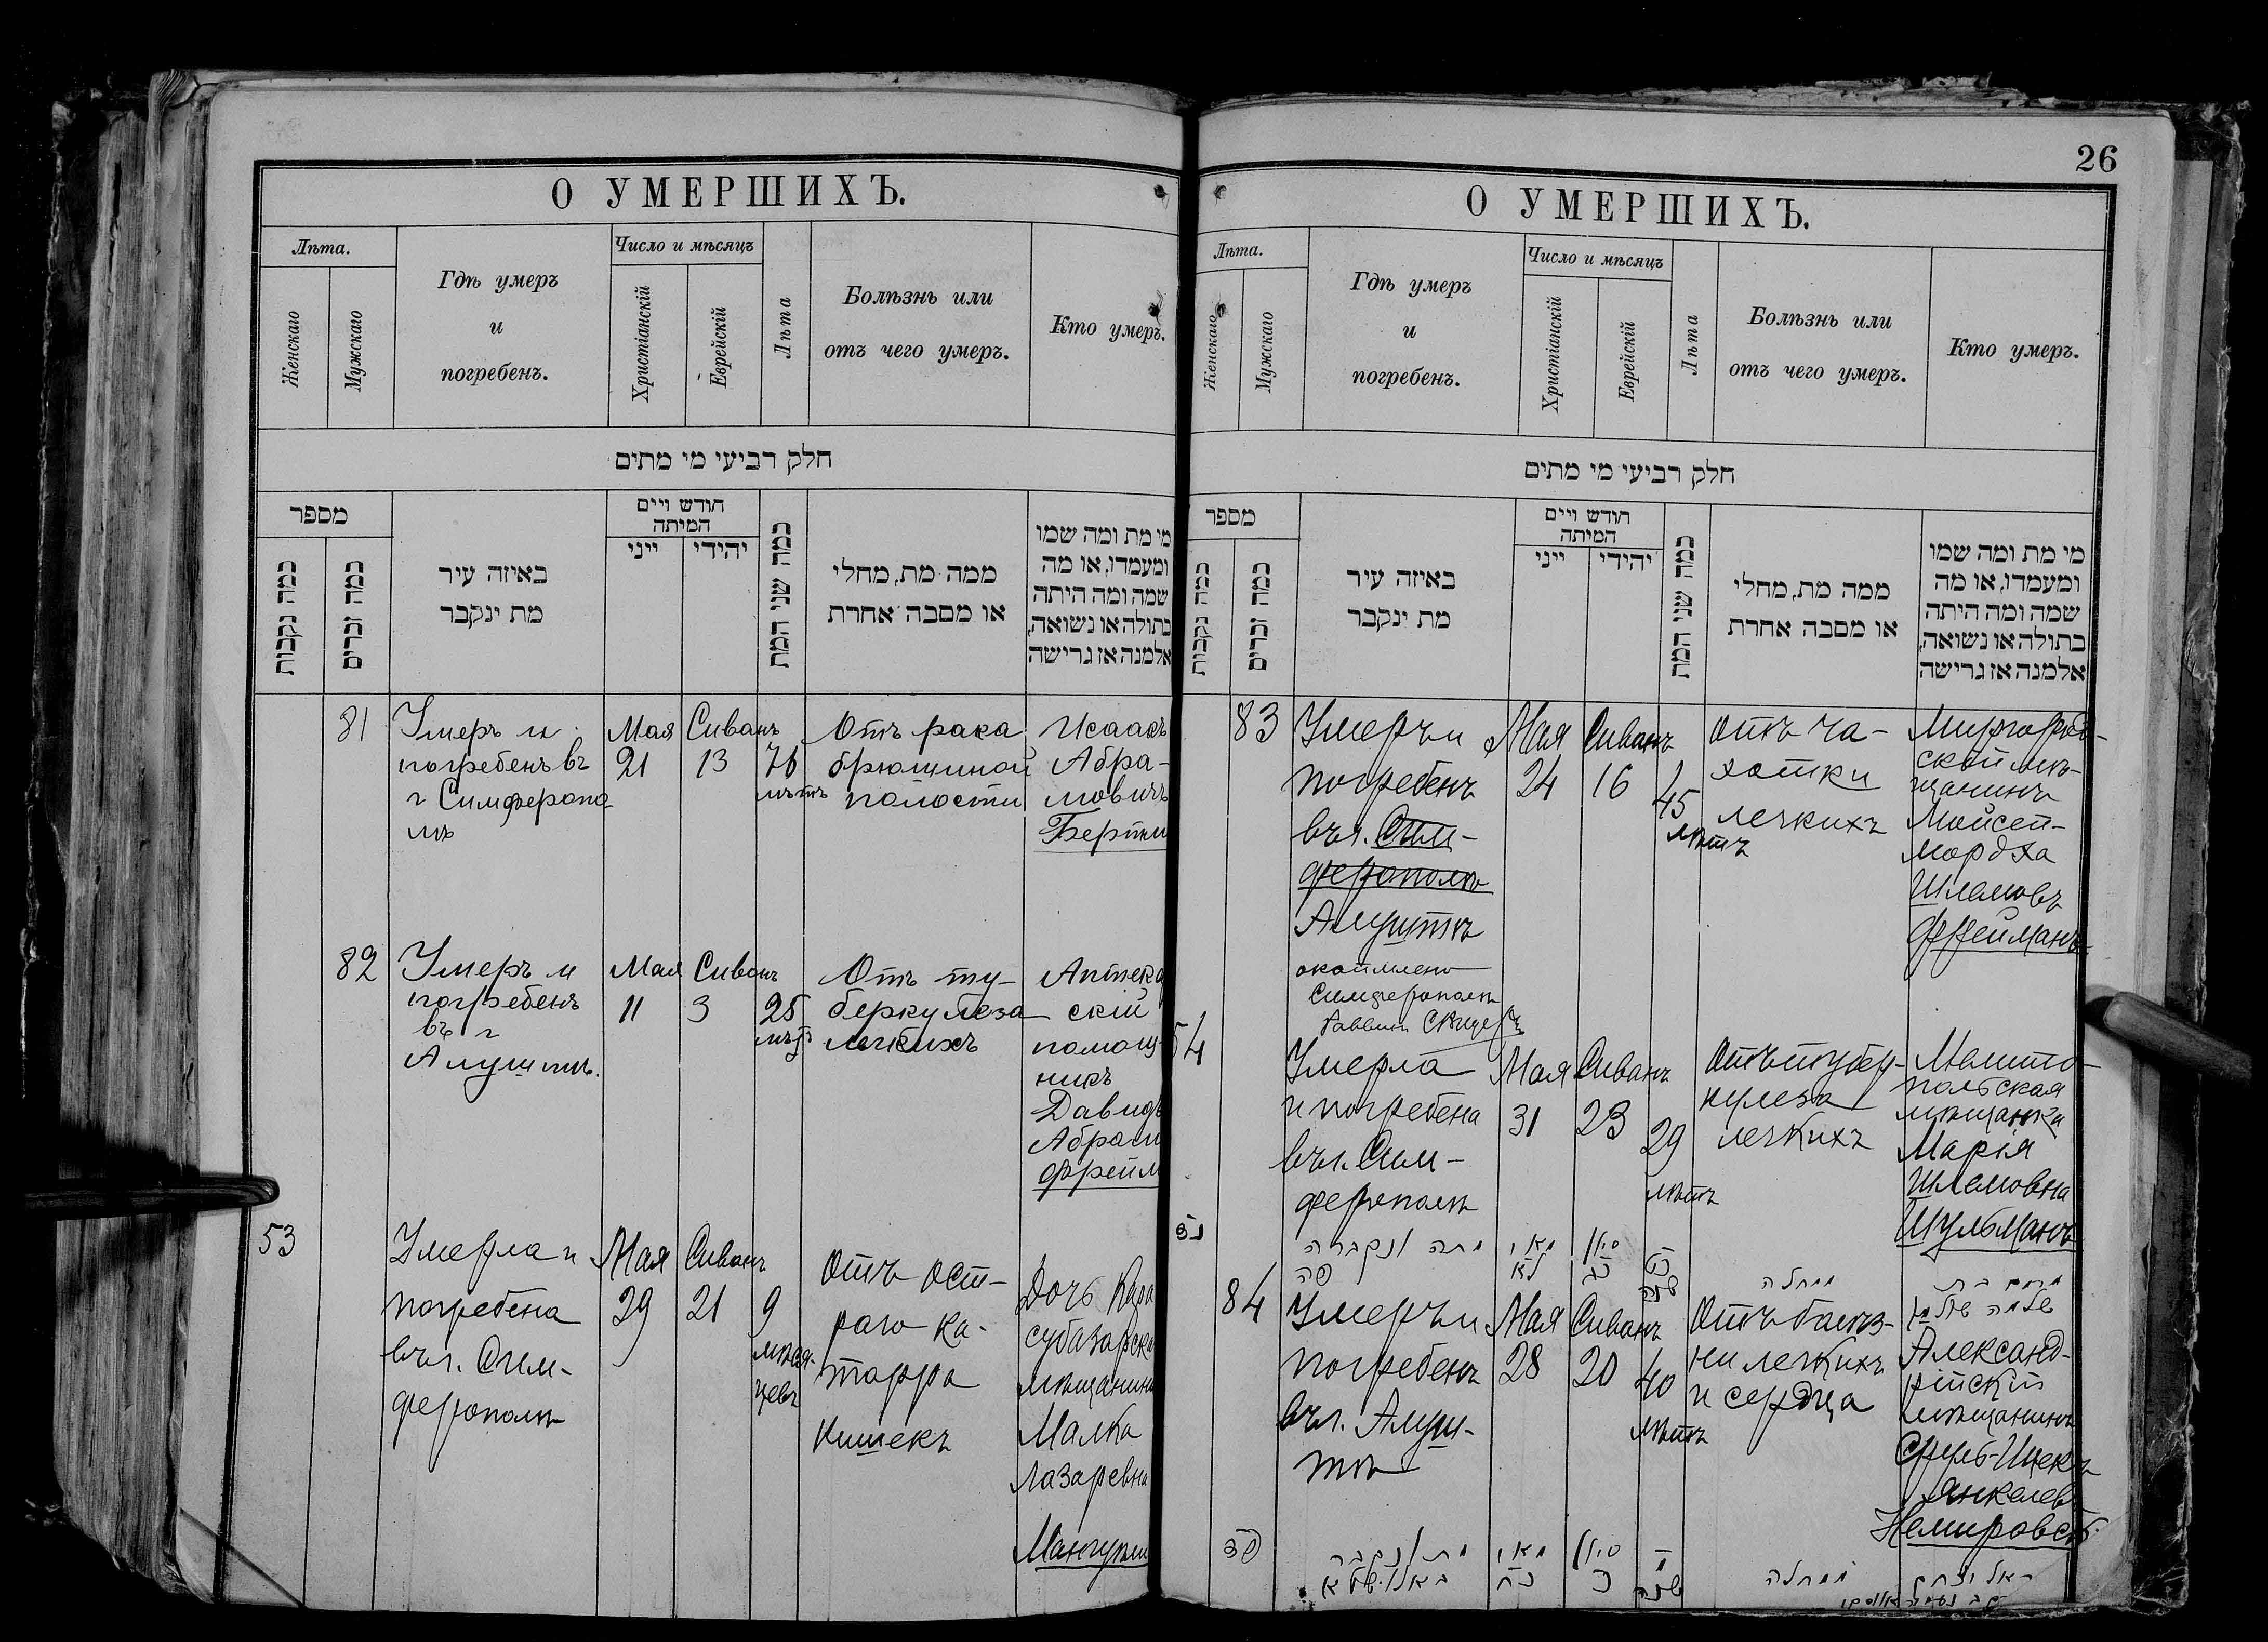 О УМЕРШИХЪ.
Лѣта.
Женскаго
Мужскаго
Гдѣ умеръ
и
погребенъ.
Число и мѣсяцъ
Христіанскій
Еврейскій
Лѣта
Болѣзнь или
отъ чего умеръ.
Кто умеръ.
חלק רביעי מי מתים
מספר
כמה נקבות
כמה זכרים
באיזה עיר
מת ינקבר
חודש ויים
המיתה
ייני
יהידי
כמה שני המת
ממה מת, מחלי
או מסבה אחרת
מי מת ומה שמו
ומעמדו, או מה
שמה ומה היתה
בתולה או נשואה,
אלמנה אז גרישה
81
Умеръ и
погребенъ въ
г Симферопо
лѣ
Мая
21
Сиванъ
13
76
лѣтъ
Отъ рака
брюшиной
полости
Исаакъ
Абра-
мовичъ
82
Умеръ и
погребенъ
въ г
Алуштѣ.
Мая
11
Сиванъ
3
25
лѣтъ
Отъ ту-
беркулеза
легкихъ
Аптека
скій
помощ-
никъ
Давидъ
Абрам
Фрейм
53
Умерла и
погребена
въ г. Сим-
ферополѣ
Мая
29
Сиванъ
21
9
мѣся-
цевъ
Отъ ост-
раго ка-
тарра
кишекъ
Дочь Кара
субазарска
мѣщанина
Малка
Лазаревна
26
О УМЕРШИХЪ.
Лѣта.
Женскаго
Мужскаго
Гдѣ умеръ
и
погребенъ.
Число и мѣсяцъ
Христіанскій
Еврейскій
Лѣта
Болѣзнь или
отъ чего умеръ.
Кто умеръ.
חלק רביעי מי מתים
מספר
כמה נקבות
כמה זכרים
באיזה עיר
מת ינקבר
חודש ויים
המיתה
ייני
יהידי
כמה שני המת
ממה מת, מחלי
או מסבה אחרת
מי מת ומה שמו
ומעמדו, או מה
שמה ומה היתה
בתולה או נשואה,
אלמנה אז גרישה
83
Умеръ и
погребенъ
въ г. Сим-
ферополѣ
Алуштѣ
Симферополь
Раввинъ
Мая
24
Сиванъ
16
45
лѣтъ
Отъ ча-
хотки
легкихъ
Миргород-
ской мѣ-
щанинъ
Мойсей-
Мордха
Шлемовъ
Фрейманъ
54
Умерла
и погребена
въ г. Сим-
ферополѣ
Мая
31
Сиванъ
23
29
лѣтъ
Отъ тубер-
кулеза
легкихъ
Мелито-
польская
мѣщанка
Марія
Шлемовна
Шульманъ
נד
מתה ונקברה
פה
מאי
לא
סיון
כג
כט
שנה
ממחלה
מרים בת
שלמה שולמן
84
Умеръ и
погребенъ
въ г. Алуш-
тѣ
Мая
28
Сиванъ
20
40
лѣтъ
Отъ болѣз-
ни легкихъ
и сердца
Александ-
рійскій
мѣщанинъ
Сруль-Ицекъ
Янкелев
Немировск.
פד
מת ונקבר
מאי
כח
סיון
כ
מ
שנה
ממחלה